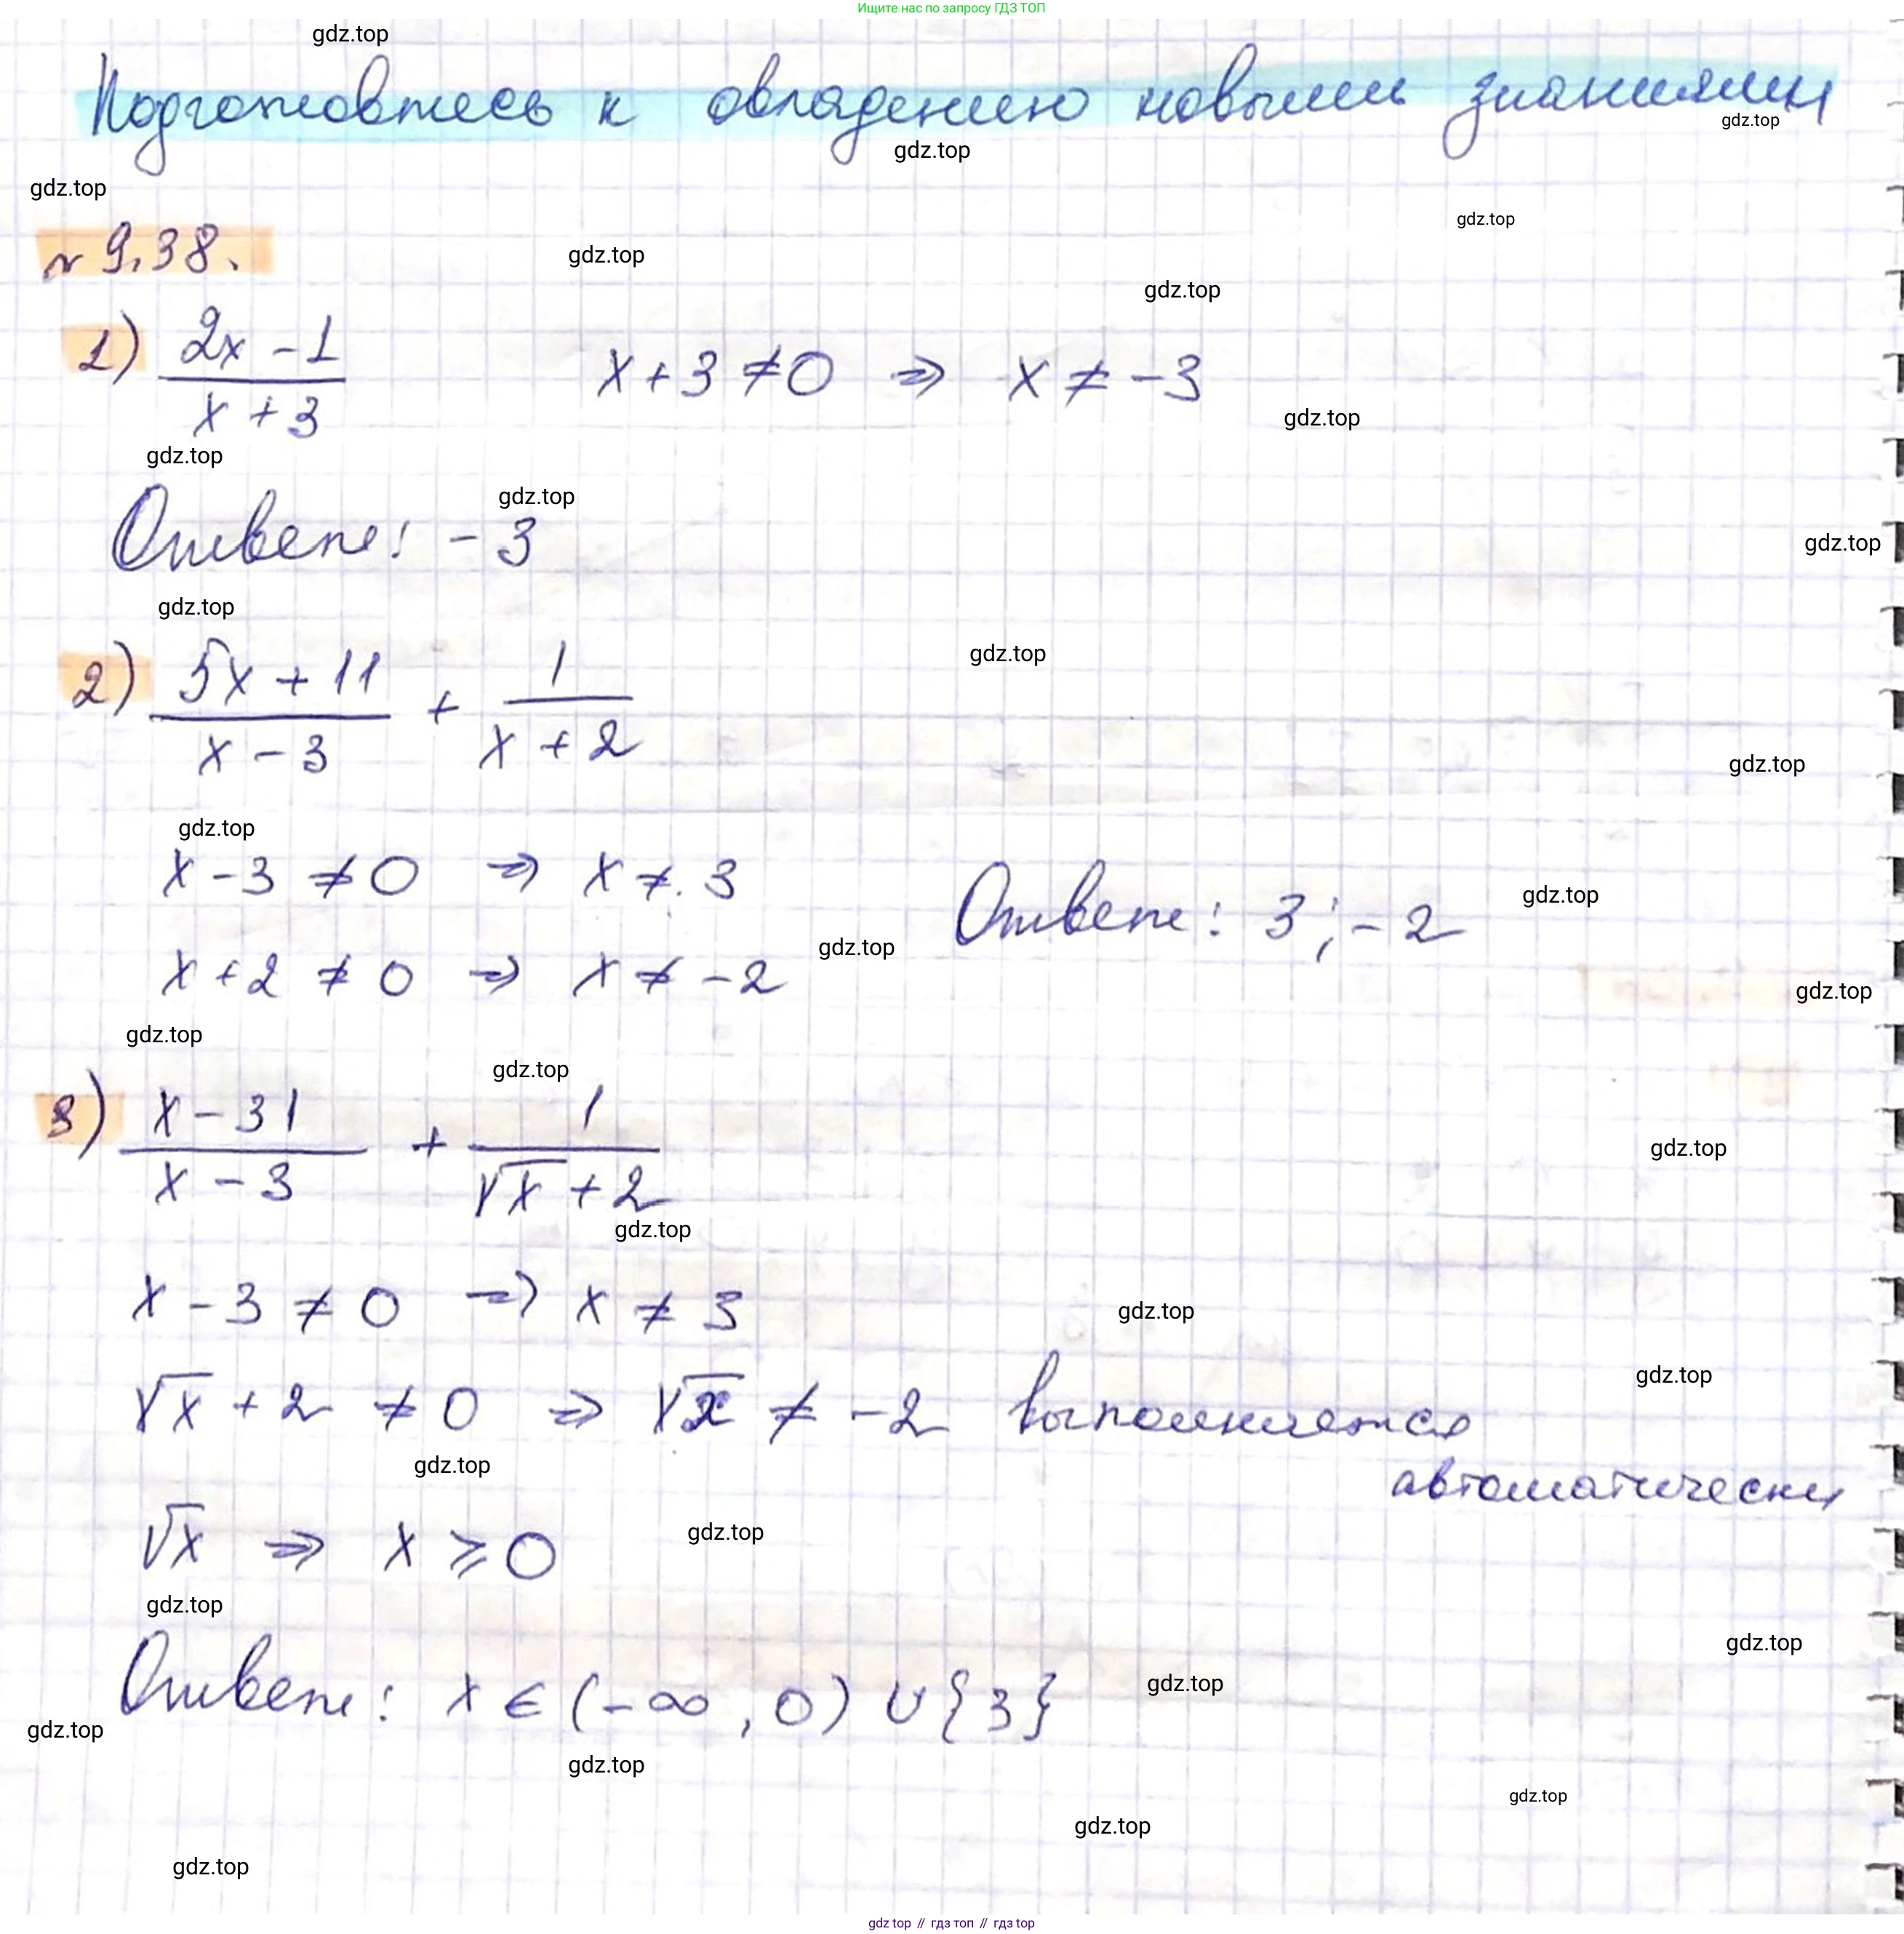 Ищите нас по запросу ГДЗ ТОП
gdz.top
Подготовтесь к овладению новыми знаниями
gdz.top
gdz.top
gdz.top
gdz.top
№ 9.38.
gdz.top
gdz.top
1) (2x - 1)/(x + 3)    x + 3 ≠ 0 ⇒ x ≠ -3
gdz.top
gdz.top
gdz.top
Ответ: -3
gdz.top
gdz.top
gdz.top
2) (5x + 11)/(x - 3) + 1/(x + 2)
gdz.top
gdz.top
x - 3 ≠ 0 ⇒ x ≠ 3
gdz.top
Ответ: 3; -2
gdz.top
x + 2 ≠ 0 ⇒ x ≠ -2
gdz.top
gdz.top
gdz.top
3) (x - 31)/(x - 3) + 1/(√x + 2)
gdz.top
gdz.top
x - 3 ≠ 0 ⇒ x ≠ 3
gdz.top
gdz.top
√x + 2 ≠ 0 ⇒ √x ≠ -2 выполняется
gdz.top
автоматически
gdz.top
√x ⇒ x ≥ 0
gdz.top
gdz.top
Ответ: x ∈ (-∞, 0) ∪ {3}
gdz.top
gdz.top
gdz.top
gdz.top
gdz.top
gdz.top
gdz top // гдз топ // gdz top